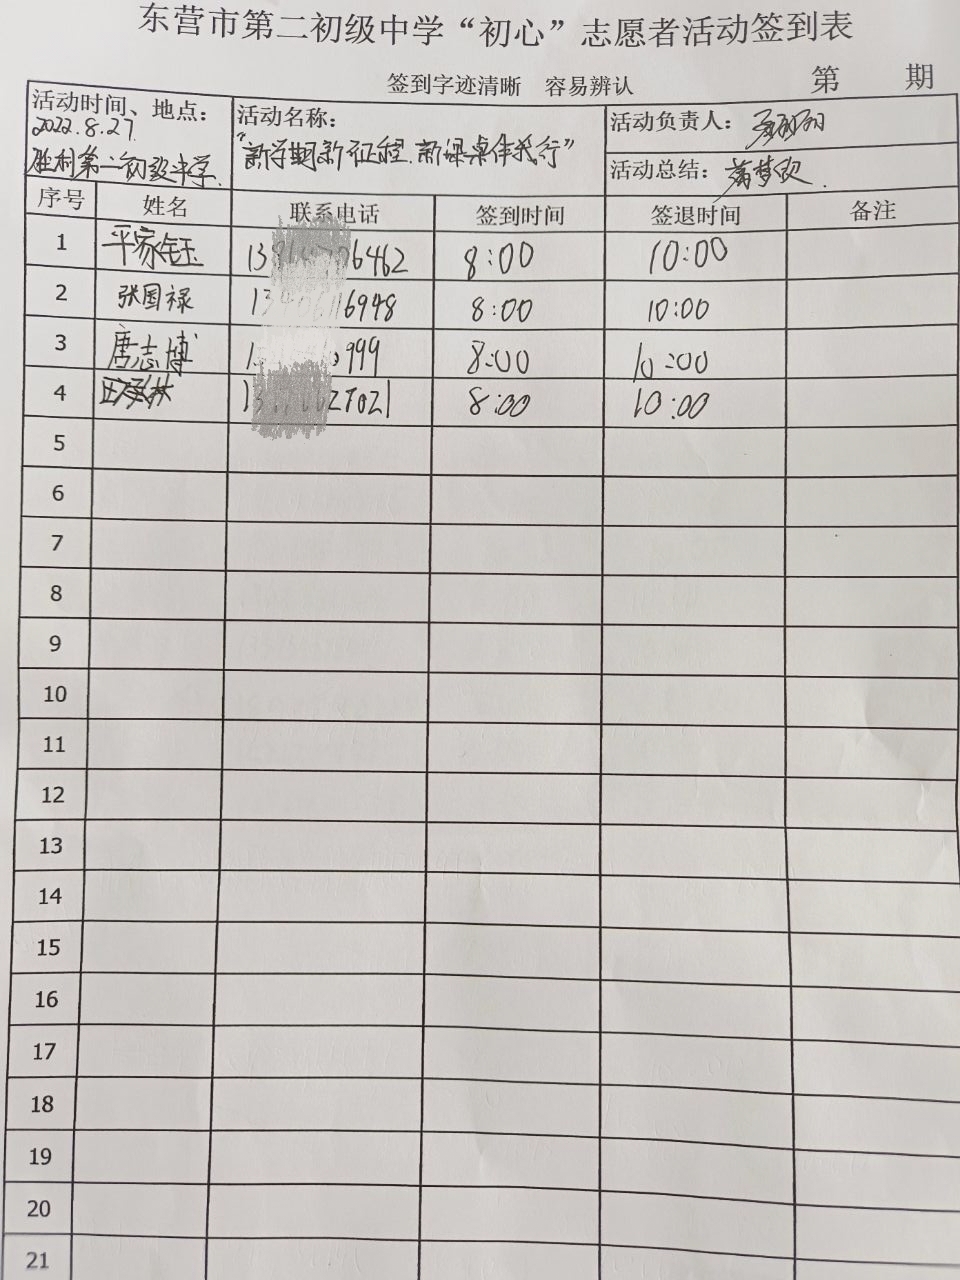 东营市第二初级中学“初心”志愿者活动签到表
签到字迹清晰 容易辨认
第 期
活动时间、地点：
2022.8.27.
胜利第二初级中学.
活动名称：
“新学期新征程.新绿桌伴我行”
活动负责人：
活动总结：
序号 姓名 联系电话 签到时间 签退时间 备注
1 平家钰 8:00 10:00
2 张国禄 8:00 10:00
3 唐志博 8:00 10:00
4 8:00 10:00
5
6
7
8
9
10
11
12
13
14
15
16
17
18
19
20
21